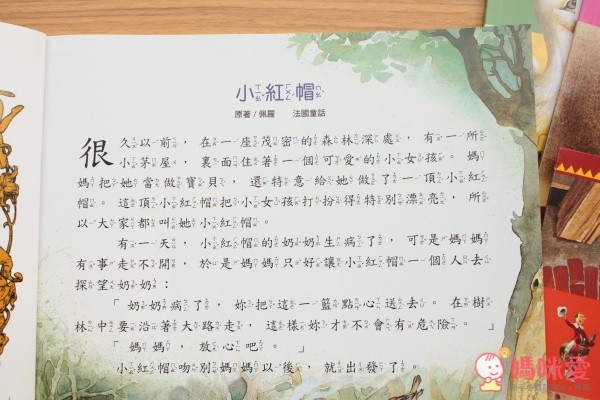 小紅帽
原著/佩羅 法國童話
很久以前，在一座茂密的森林深處，有一所
小茅屋，裏面住著一個可愛的小女孩。媽
媽把她當做寶貝，還特意給她做了一頂小紅
帽。這頂小紅帽把小女孩打扮得特別漂亮，所
以大家都叫她小紅帽。
有一天，小紅帽的奶奶生病了，可是媽媽
有事走不開，於是媽媽只好讓小紅帽一個人去
探望奶奶：
「奶奶病了，妳把這一籃點心送去。在樹
林中要沿著大路走，這樣妳才不會有危險。」
「媽媽，放心吧。」
小紅帽吻別媽媽以後，就出發了。
媽咪愛